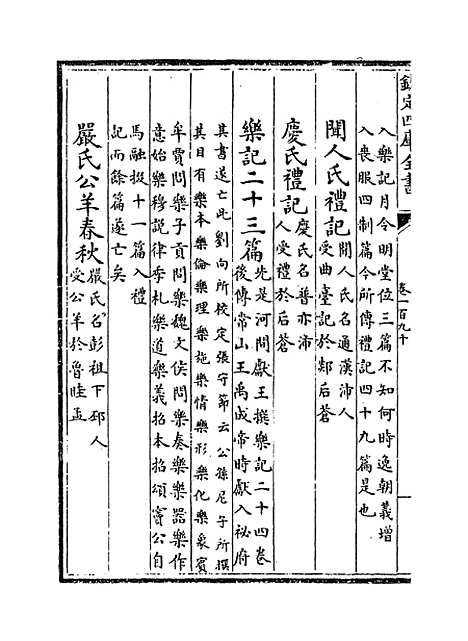 欽定四庫全書
卷一百九十
入樂記月令明堂位三篇不知何時逸朝義增
入喪服四制篇今所傳禮記四十九篇是也
聞人氏禮記聞人氏名通漢沛人
受曲臺記於鄭后蒼
慶氏禮記慶氏名普亦沛
人受禮於后蒼
樂記二十三篇先是河間獻王撰樂記二十四卷
後傳常山王禹成帝時獻入祕府
其書遂亡此劉向所校定張守節云公孫尼子所撰
其目有樂本樂倫樂理樂施樂情樂形樂化樂象賓
牟賈問樂子貢問樂魏文侯問樂奏樂樂器樂作
意始樂穆說律季札樂道樂義招本招頌竇公自
馬融掇十一篇入禮
記而餘篇遂亡矣
嚴氏公羊春秋嚴氏名彭祖下邳人
受公羊於魯眭孟